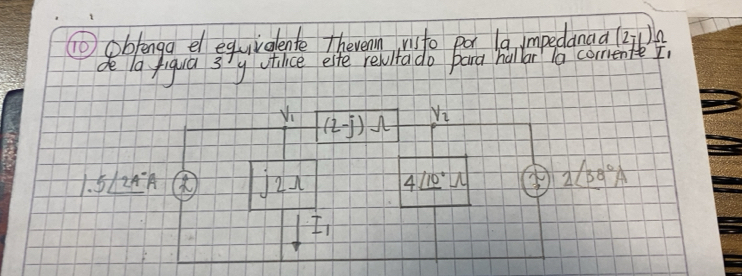 10 Obtenga el equivalente Thevenin visto por la impedancia (2-j) Ω
de la figura 3 y utilice este resultado para hallar la corriente I₁
V₁ (2-j) Ω V₂
1.5∠24°A j2Ω 4∠10° Ω 2∠38°A
I₁